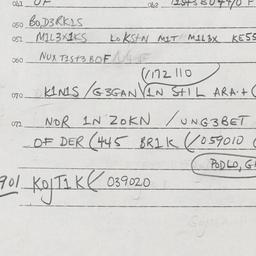 061 OF 062 1ST3B04470 F
050 BOD3RK1S
051 M1L3X1KS LOKSHN M1T M1L3X KESS
060 NUXT3ST3BOF
(/172 110
070 K1N1S /G3GAN (1N SH1L ARA+(
072 NOR 1N ZOKN /UNG3BET
OF DER (445 BR1K (/059010 (
PODLO, G
901 KOJT1K(/ 039020